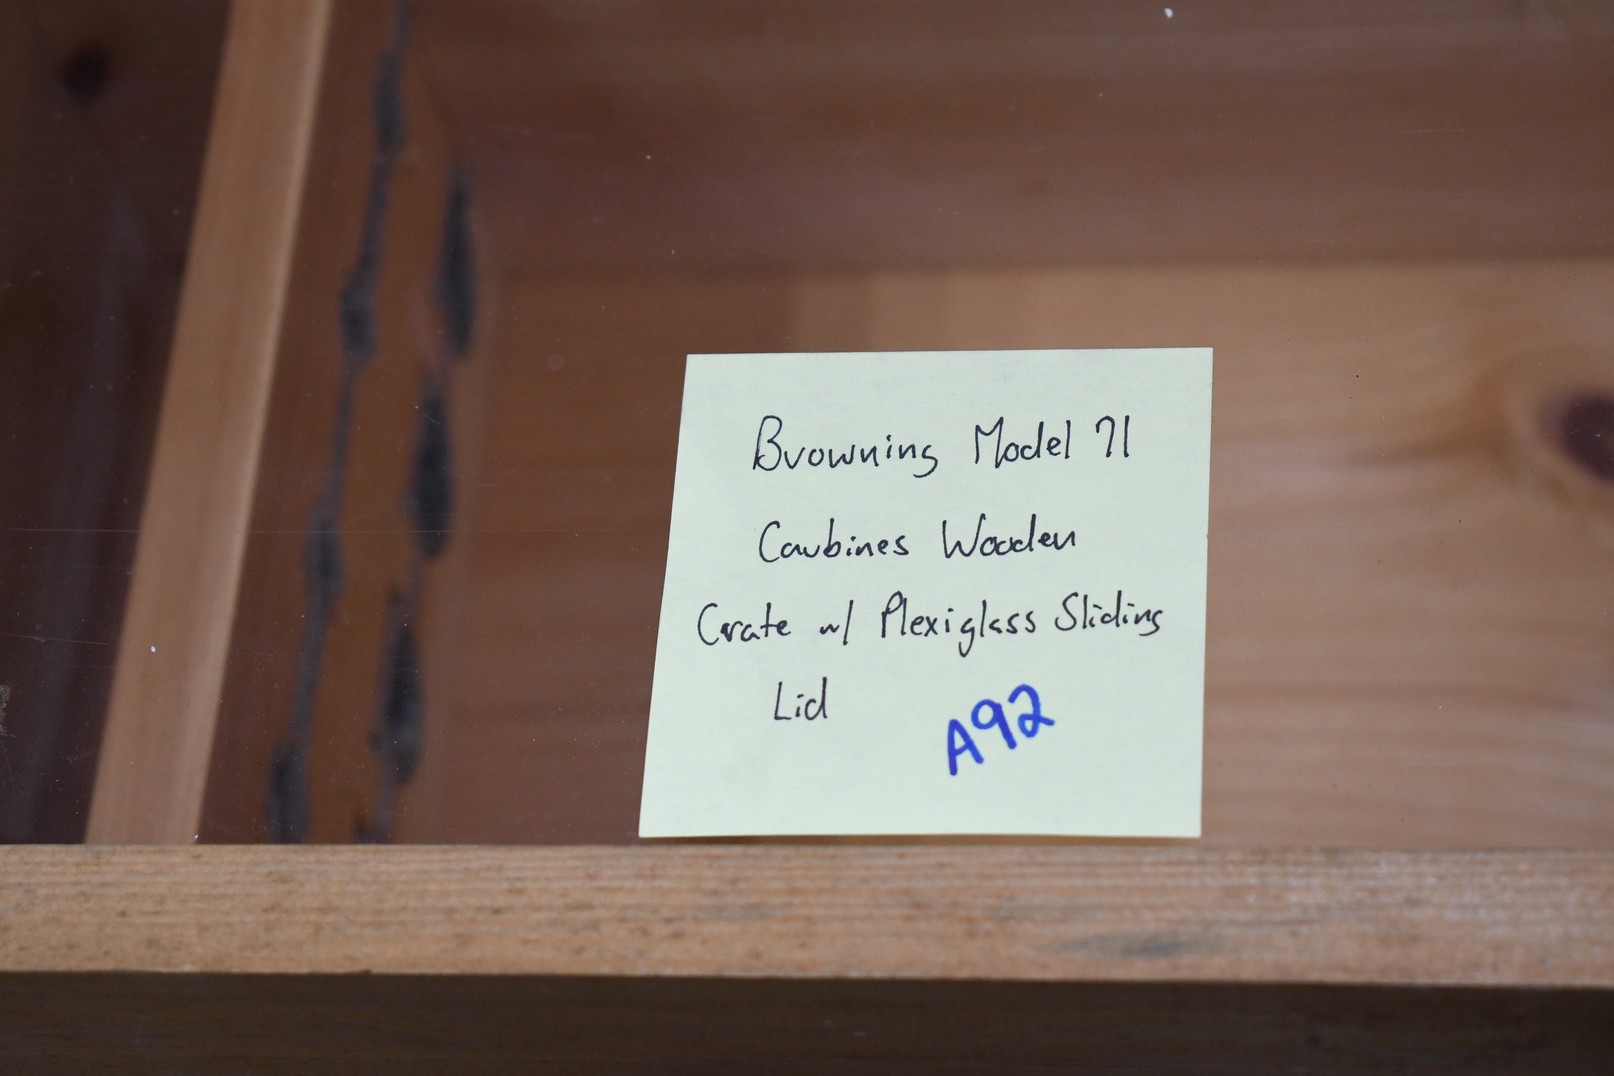 Browning Model 71
Carbines Wooden
Crate w/ Plexiglass Sliding
Lid
A92